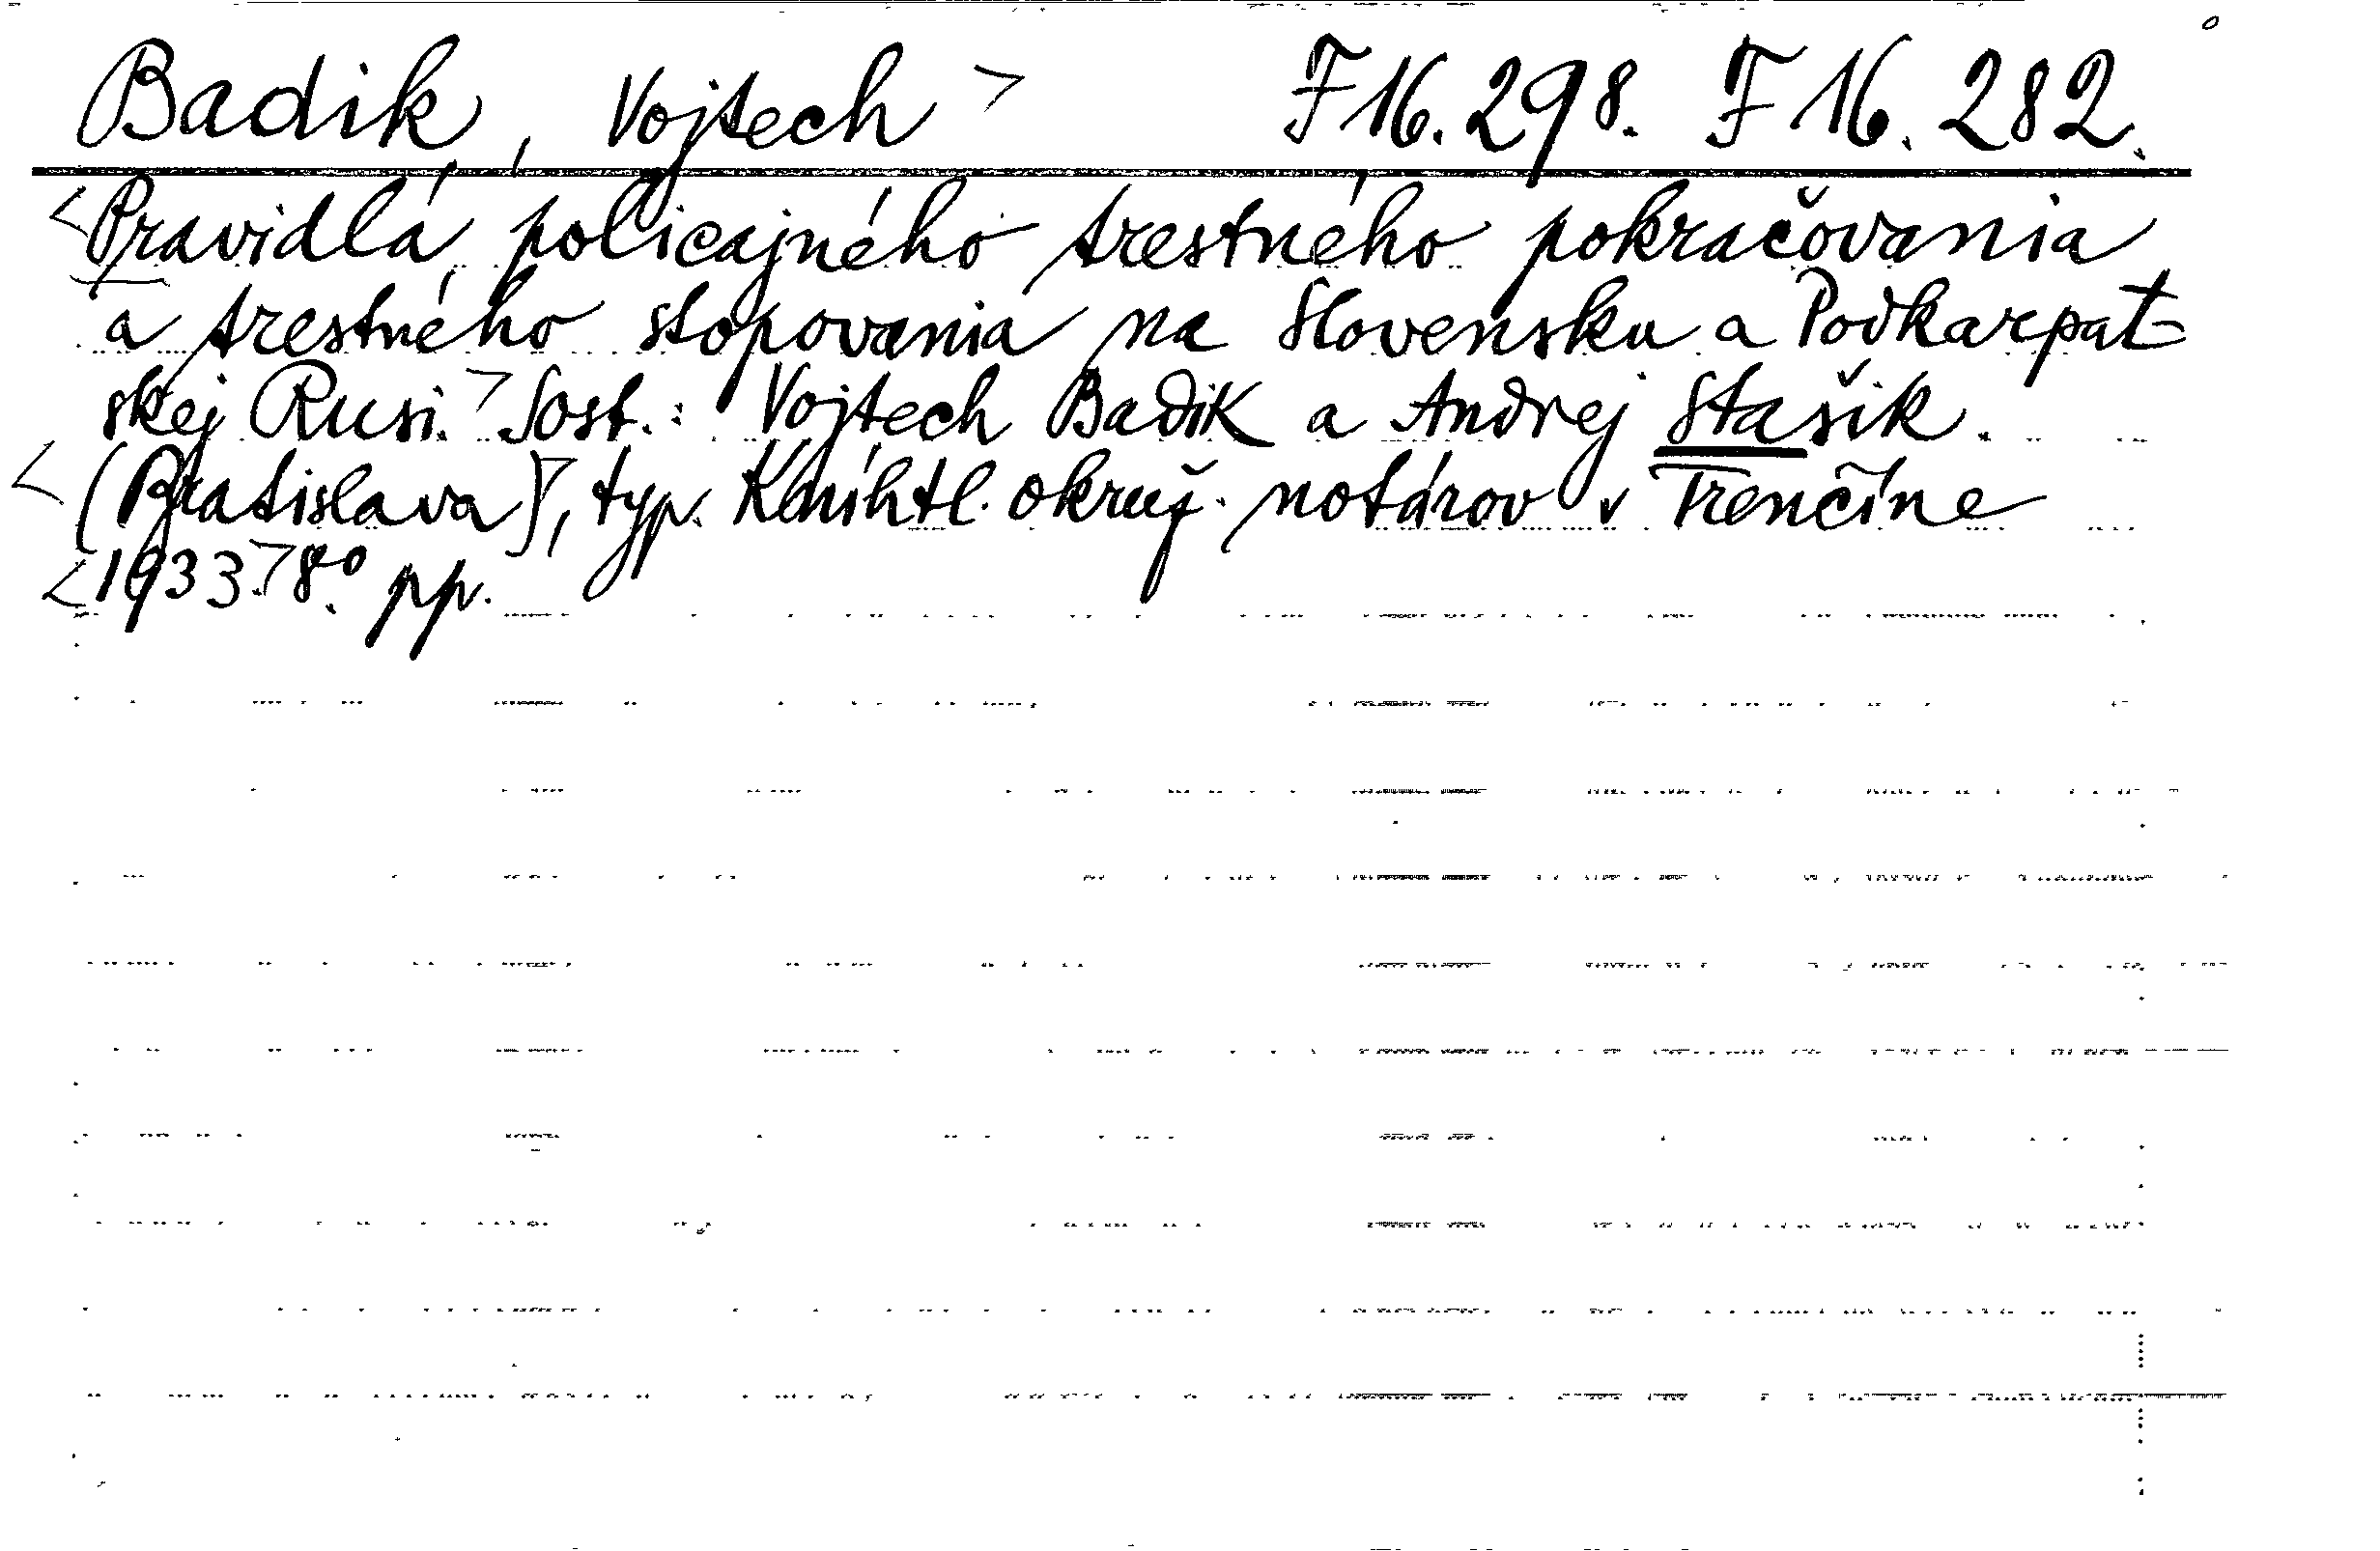 Badik, Vojtech> F 16.298. F 16.282.
<Pravidlá policajného trestného pokračovania
a trestného stopovania na Slovensku a Podkarpat-
skej Rusi.> Sost.: Vojtech Badik a Andrej Stašik.
<(Bratislava)>, typ. Kníhtl. okruž. notárov v Trenčíne
<1933.> 8º. pp.